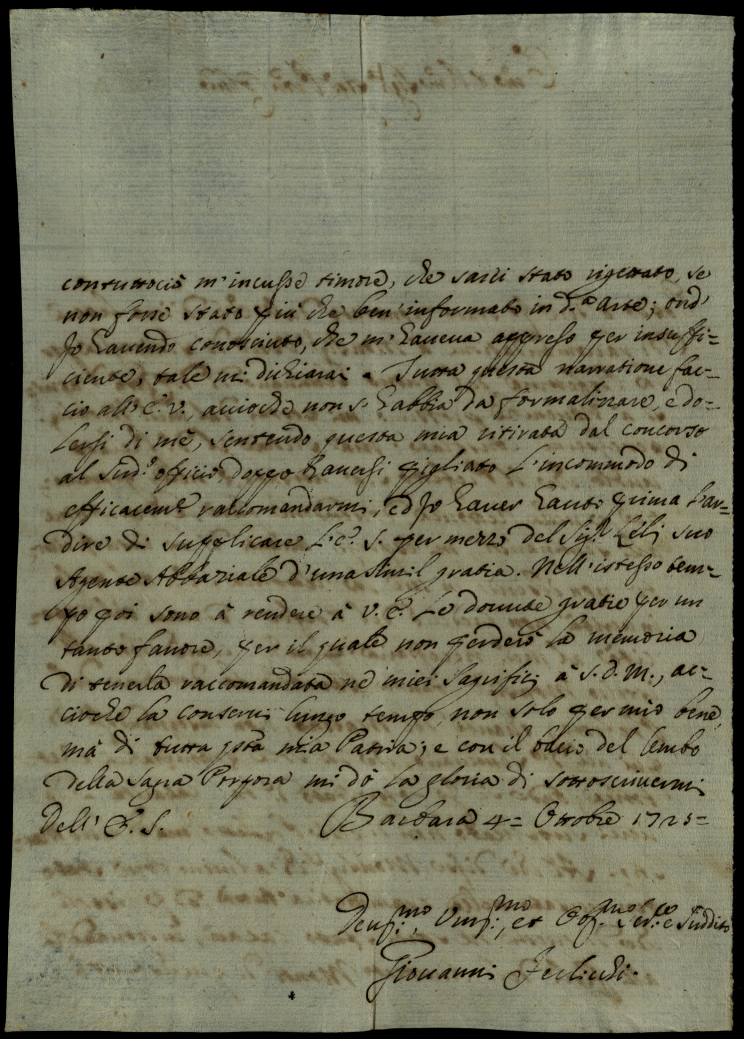 contuttociò m'incusse timore, che sarei stato rigettato, se
non fosse stato più che ben' informato in d.ª arte; ond'
Jo havendo conosciuto, che m'haveva appreso per insuffi=
ciente, tale mi dichiarai. Tutta questa narratione fac=
cio all' E. V., acciochè non s' habbia da formalizzare, e do=
lersi di mè, sentendo questa mia ritirata dal concorso
al sud.º officio, doppo havessi pigliato l'incommodo di
efficacem.te raccomandarmi, ed Jo haver hauto prima l'ar=
dire di supplicare l'E. S. per mezzo del Sig.r Lelj suo
Agente Abbaziale d'una simil gratia. Nell'istesso tem=
po poi sono à rendere à V. E. le dovute gratie per un
tanto favore, per il quale non perderò la memoria
di tenerla raccomandata ne' miei Sagrificj à S. D. M., ac=
cioche la conservi lungo tempo, non solo per mio bene,
mà di tutta q̃sta mia Patria; e con il bacio del lembo
della Sagra Porpora mi dò la gloria di sottoscrivermi
Dell' E. S. Barbara 4= Ottobre 1725=
Devs.mo, Um.mo, et Obl.mo Ser.e e Suddito
Giovanni